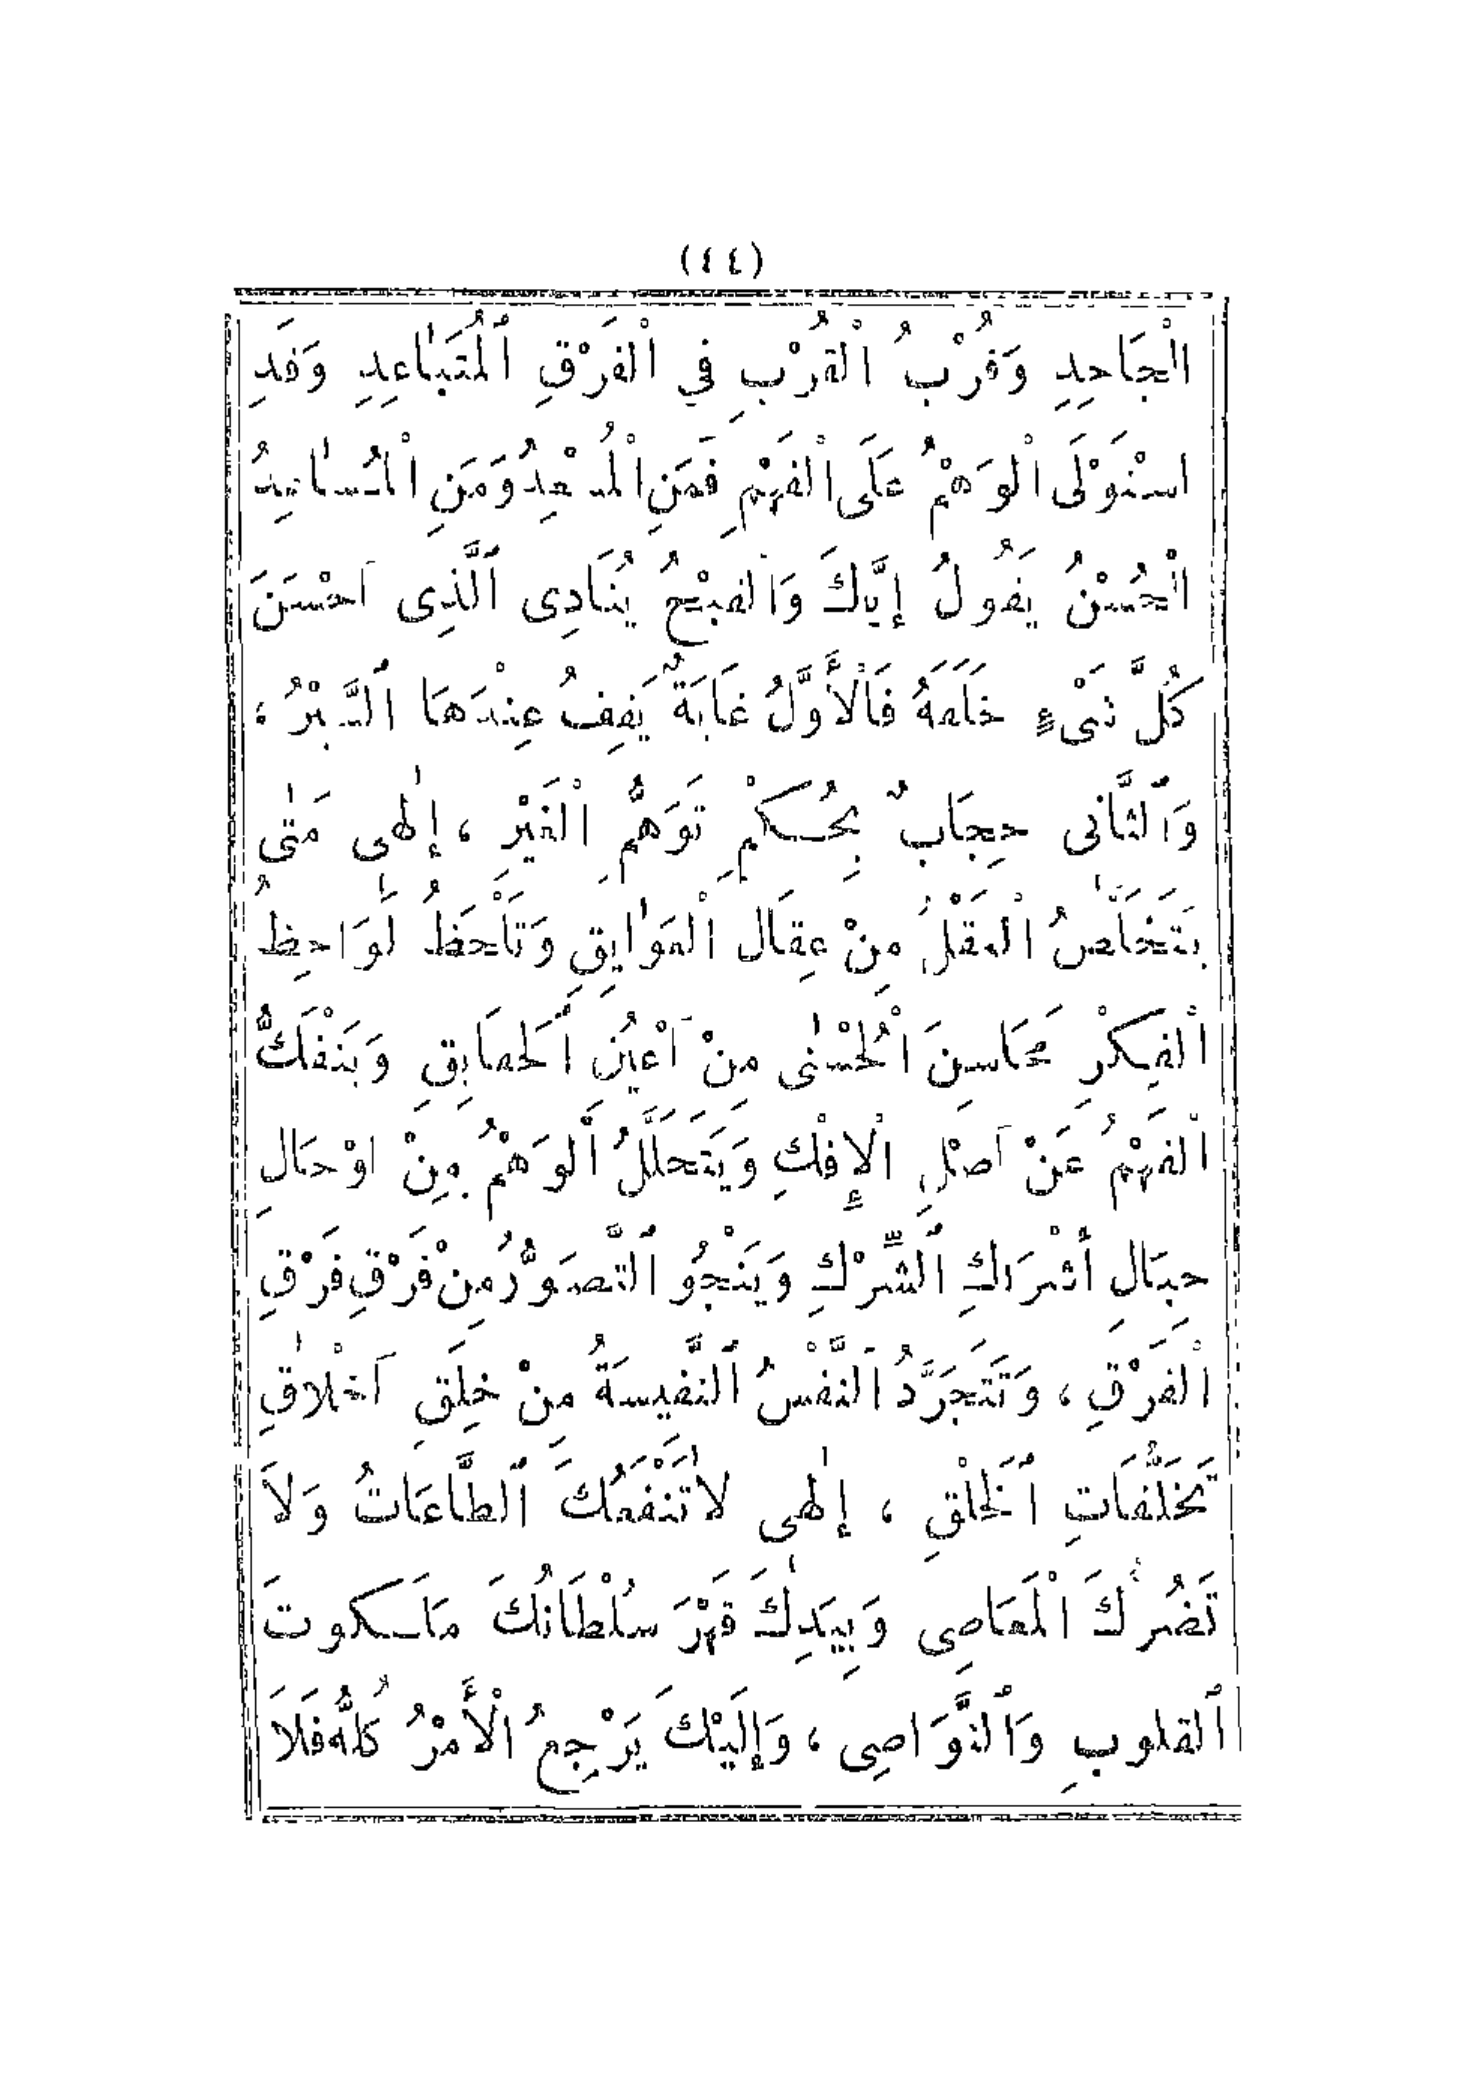 (٤٤)
الْجَاحِدِ وَقُرْبُ الْقُرْبِ فِي الْفَرْقِ ٱلْمُتَبَاعِدِ وَقَدِ
اسْتَوْلَى الْوَهْمُ عَلَى الْفَهْمِ فَمَنِ الْمُسْعِدُ وَمَنِ الْمُسَاعِدُ
الْحُسْنُ يَقُولُ إِيَّاكَ وَالْقُبْحُ يُنَادِى ٱلَّذِى اَحْسَنَ
كُلَّ شَىْءٍ خَلَقَهُ فَالْأَوَّلُ غَايَةٌ يَقِفُ عِنْدَهَا ٱلسَّيْرُ ،
وَٱلثَّانِى حِجَابٌ بِحُكْمِ تَوَهُّمِ الْغَيْرِ ، إِلٰهِى مَتٰى
يَتَخَلَّصُ الْعَقْلُ مِنْ عِقَالِ الْعَوَايِقِ وَتَلْحَظُ لَوَاحِظُ
الْفِكْرِ مَحَاسِنَ الْحُسْنٰى مِنْ اَعْيُنِ ٱلْحَقَايِقِ وَيَنْفَكُّ
الْفَهْمُ عَنْ اَصْلِ الْإِفْكِ وَيَتَحَلَّلُ ٱلْوَهْمُ مِنْ اَوْحَالِ
حِبَالِ أَشْرَاكِ ٱلشِّرْكِ وَيَنْجُو التَّصَوُّرُ مِنْ فَرْقِ فَرْقِ
الْفَرْقِ ، وَتَتَجَرَّدُ ٱلنَّفْسُ ٱلنَّفِيسَةُ مِنْ خِلَقِ اَخْلَاقِ
تَخَلُّقَاتِ ٱلْخَلْقِ ، إِلٰهِى لاَتَنْفَعُكَ ٱلطَّاعَاتُ وَلاَ
تَضُرُّكَ الْمَعَاصِى وَبِيَدِكَ قَهْرَ سُلْطَانُكَ مَلَكوتَ
ٱلقلوبِ وَٱلنَّوَاصِى ، وَإِلَيْكَ يَرْجِعُ الْأَمْرُ كُلُّهُ فَلاَ